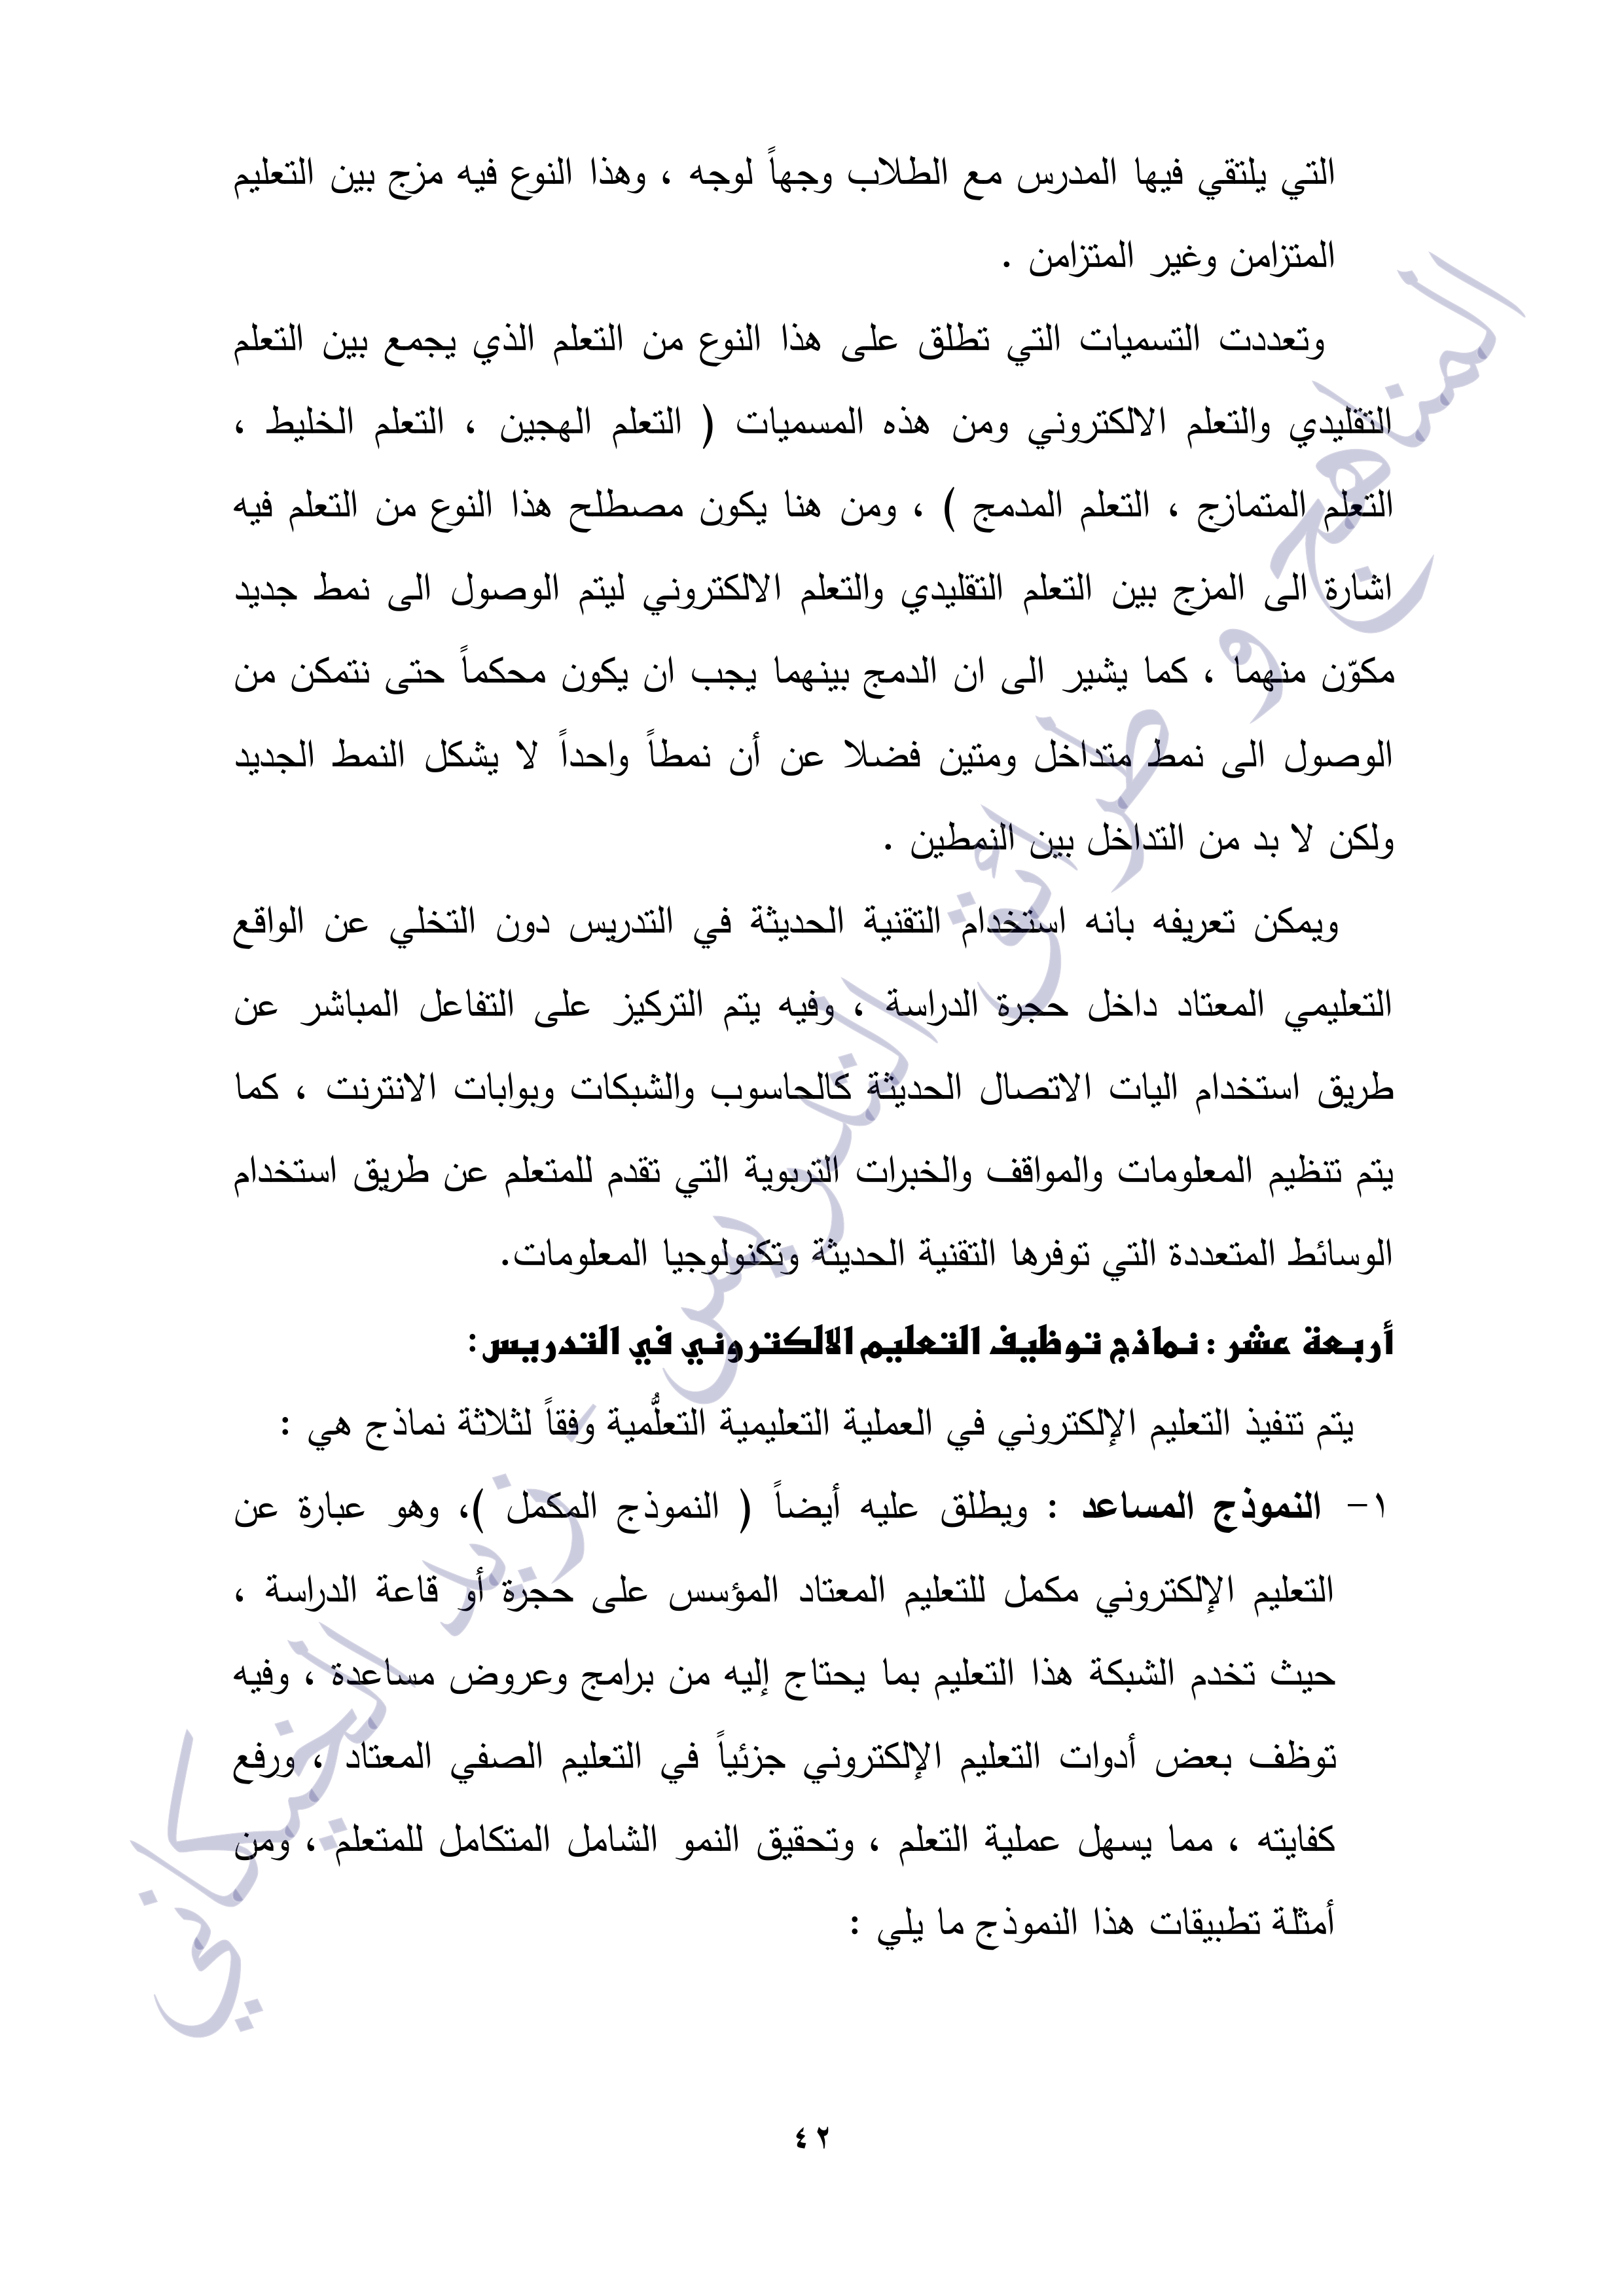 التي يلتقي فيها المدرس مع الطلاب وجهاً لوجه ، وهذا النوع فيه مزج بين التعليم
المتزامن وغير المتزامن .
وتعددت التسميات التي تطلق على هذا النوع من التعلم الذي يجمع بين التعلم
التقليدي والتعلم الالكتروني ومن هذه المسميات ( التعلم الهجين ، التعلم الخليط ،
التعلم المتمازج ، التعلم المدمج ) ، ومن هنا يكون مصطلح هذا النوع من التعلم فيه
اشارة الى المزج بين التعلم التقليدي والتعلم الالكتروني ليتم الوصول الى نمط جديد
مكوّن منهما ، كما يشير الى ان الدمج بينهما يجب ان يكون محكماً حتى نتمكن من
الوصول الى نمط متداخل ومتين فضلا عن أن نمطاً واحداً لا يشكل النمط الجديد
ولكن لا بد من التداخل بين النمطين .
ويمكن تعريفه بانه استخدام التقنية الحديثة في التدريس دون التخلي عن الواقع
التعليمي المعتاد داخل حجرة الدراسة ، وفيه يتم التركيز على التفاعل المباشر عن
طريق استخدام اليات الاتصال الحديثة كالحاسوب والشبكات وبوابات الانترنت ، كما
يتم تنظيم المعلومات والمواقف والخبرات التربوية التي تقدم للمتعلم عن طريق استخدام
الوسائط المتعددة التي توفرها التقنية الحديثة وتكنولوجيا المعلومات.
أربعة عشر : نماذج توظيف التعليم الالكتروني في التدريس:
يتم تنفيذ التعليم الإلكتروني في العملية التعليمية التعلُّمية وفقاً لثلاثة نماذج هي :
١- النموذج المساعد : ويطلق عليه أيضاً ( النموذج المكمل )، وهو عبارة عن
التعليم الإلكتروني مكمل للتعليم المعتاد المؤسس على حجرة أو قاعة الدراسة ،
حيث تخدم الشبكة هذا التعليم بما يحتاج إليه من برامج وعروض مساعدة ، وفيه
توظف بعض أدوات التعليم الإلكتروني جزئياً في التعليم الصفي المعتاد ، ورفع
كفايته ، مما يسهل عملية التعلم ، وتحقيق النمو الشامل المتكامل للمتعلم ، ومن
أمثلة تطبيقات هذا النموذج ما يلي :
المناهج و طرائق التدريس - زيد الخيكاني
٤٢